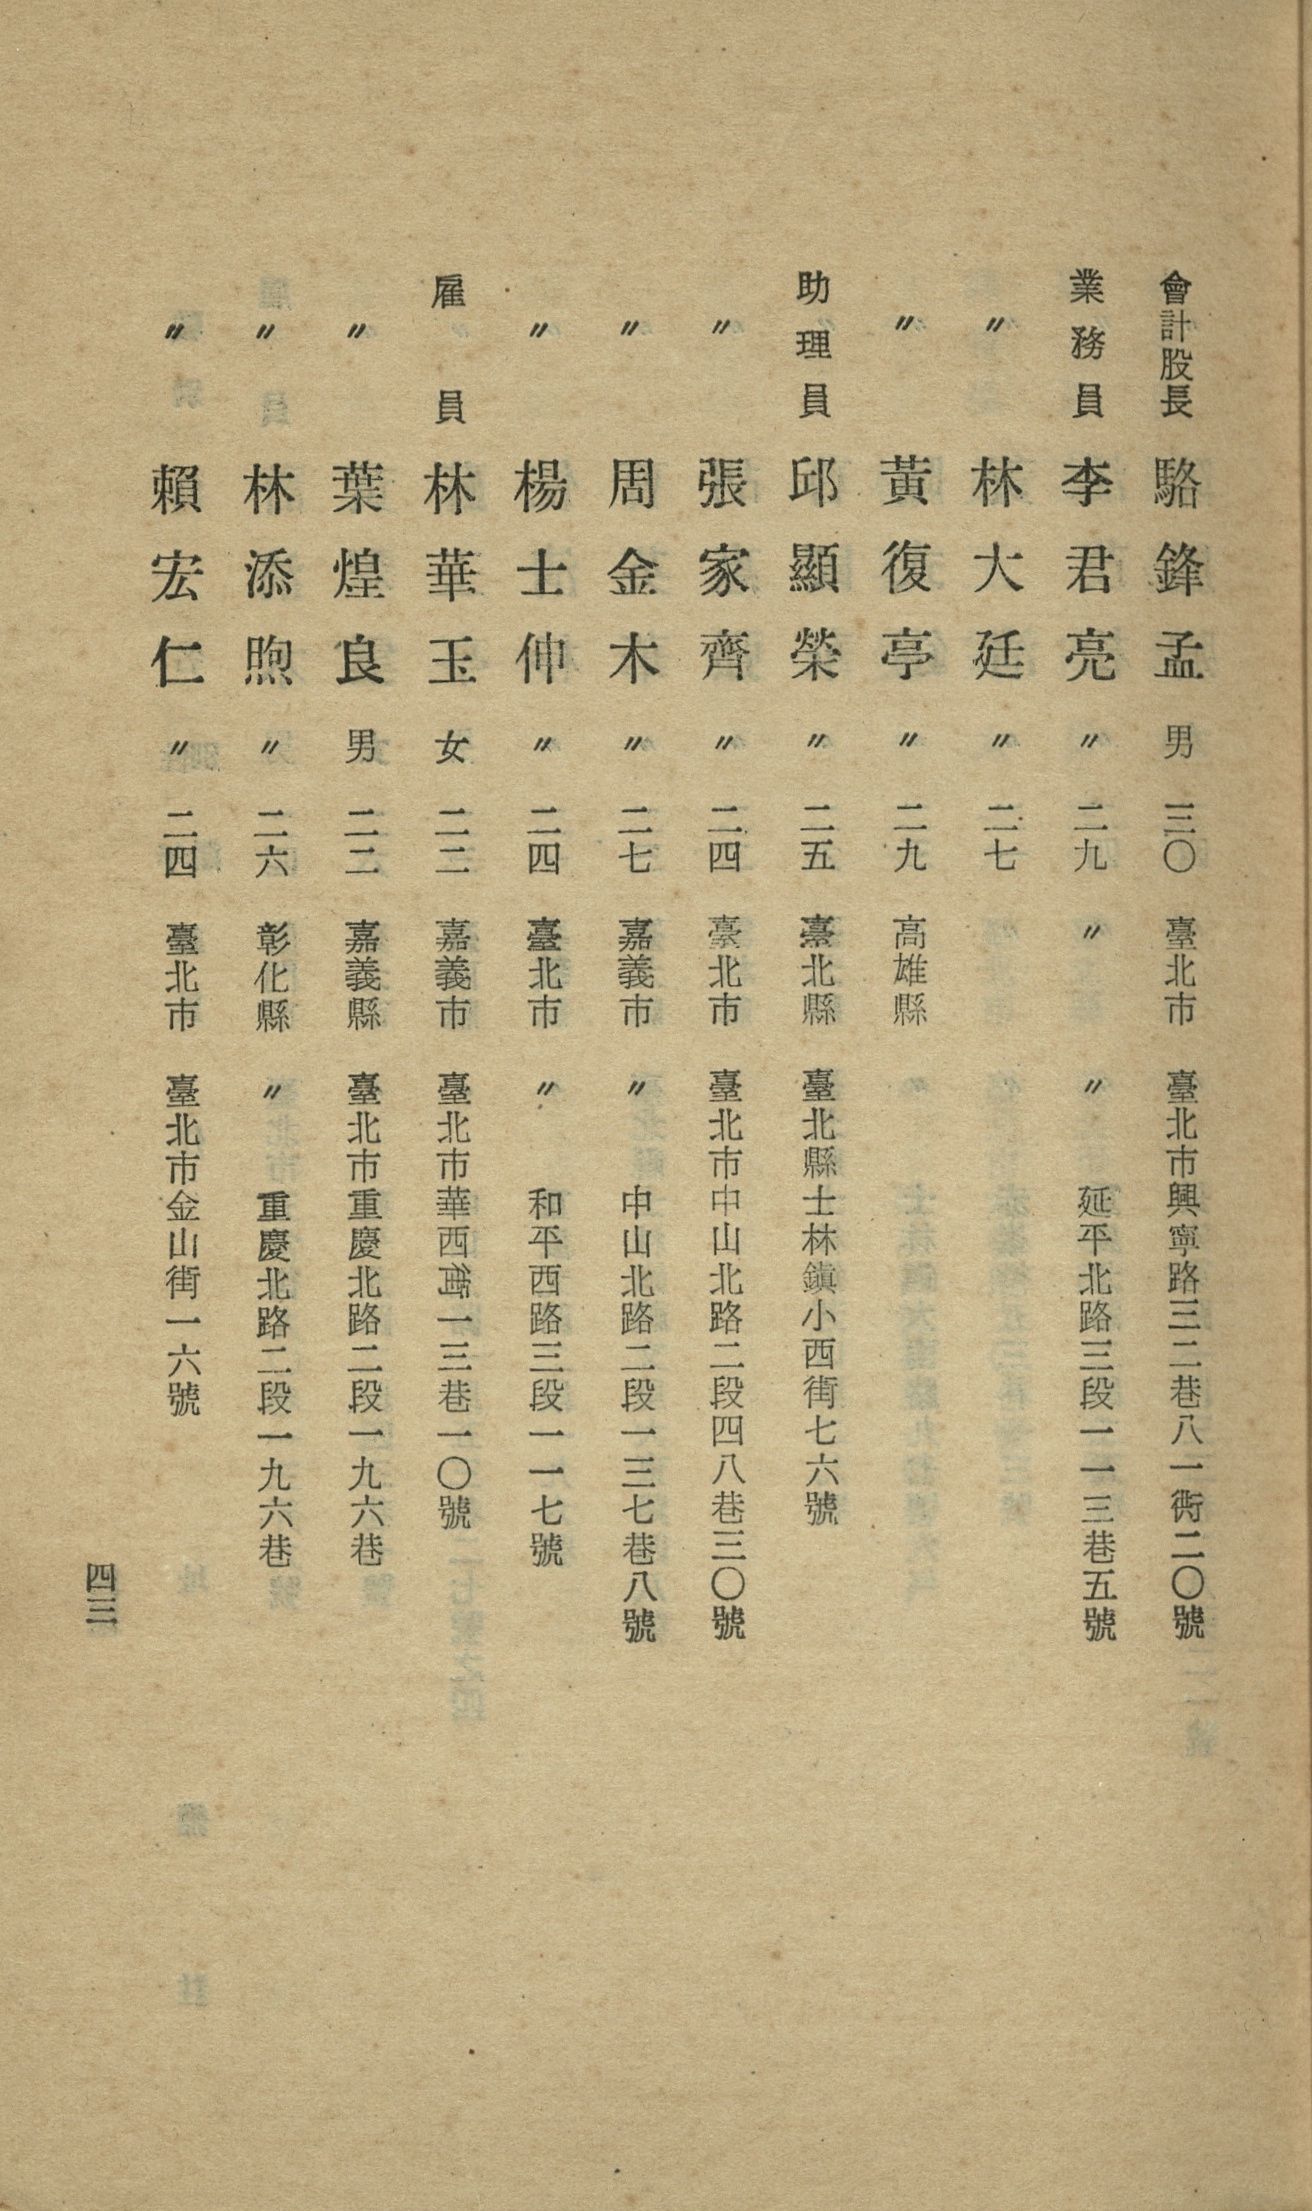 會計股長 駱鋒孟 男 三〇 臺北市 臺北市興寧路三二巷八一衖二〇號
業務員 李君亮 〃 二九 〃 〃 延平北路三段一一三巷五號
〃 林大廷 〃 二七
〃 黃復亭 〃 二九 高雄縣
助理員 邱顯榮 〃 二五 臺北縣 臺北縣士林鎮小西街七六號
〃 張家齊 〃 二四 臺北市 臺北市中山北路二段四八巷三〇號
〃 周金木 〃 二七 嘉義市 〃 中山北路二段一三七巷八號
〃 楊士仲 〃 二四 臺北市 〃 和平西路三段一一七號
雇員 林華玉 女 二二 嘉義市 臺北市華西街一三巷一〇號
〃 葉煌良 男 二二 嘉義縣 臺北市重慶北路二段一九六巷
〃 林添煦 〃 二六 彰化縣 〃 重慶北路二段一九六巷
〃 賴宏仁 〃 二四 臺北市 臺北市金山街一六號
四三